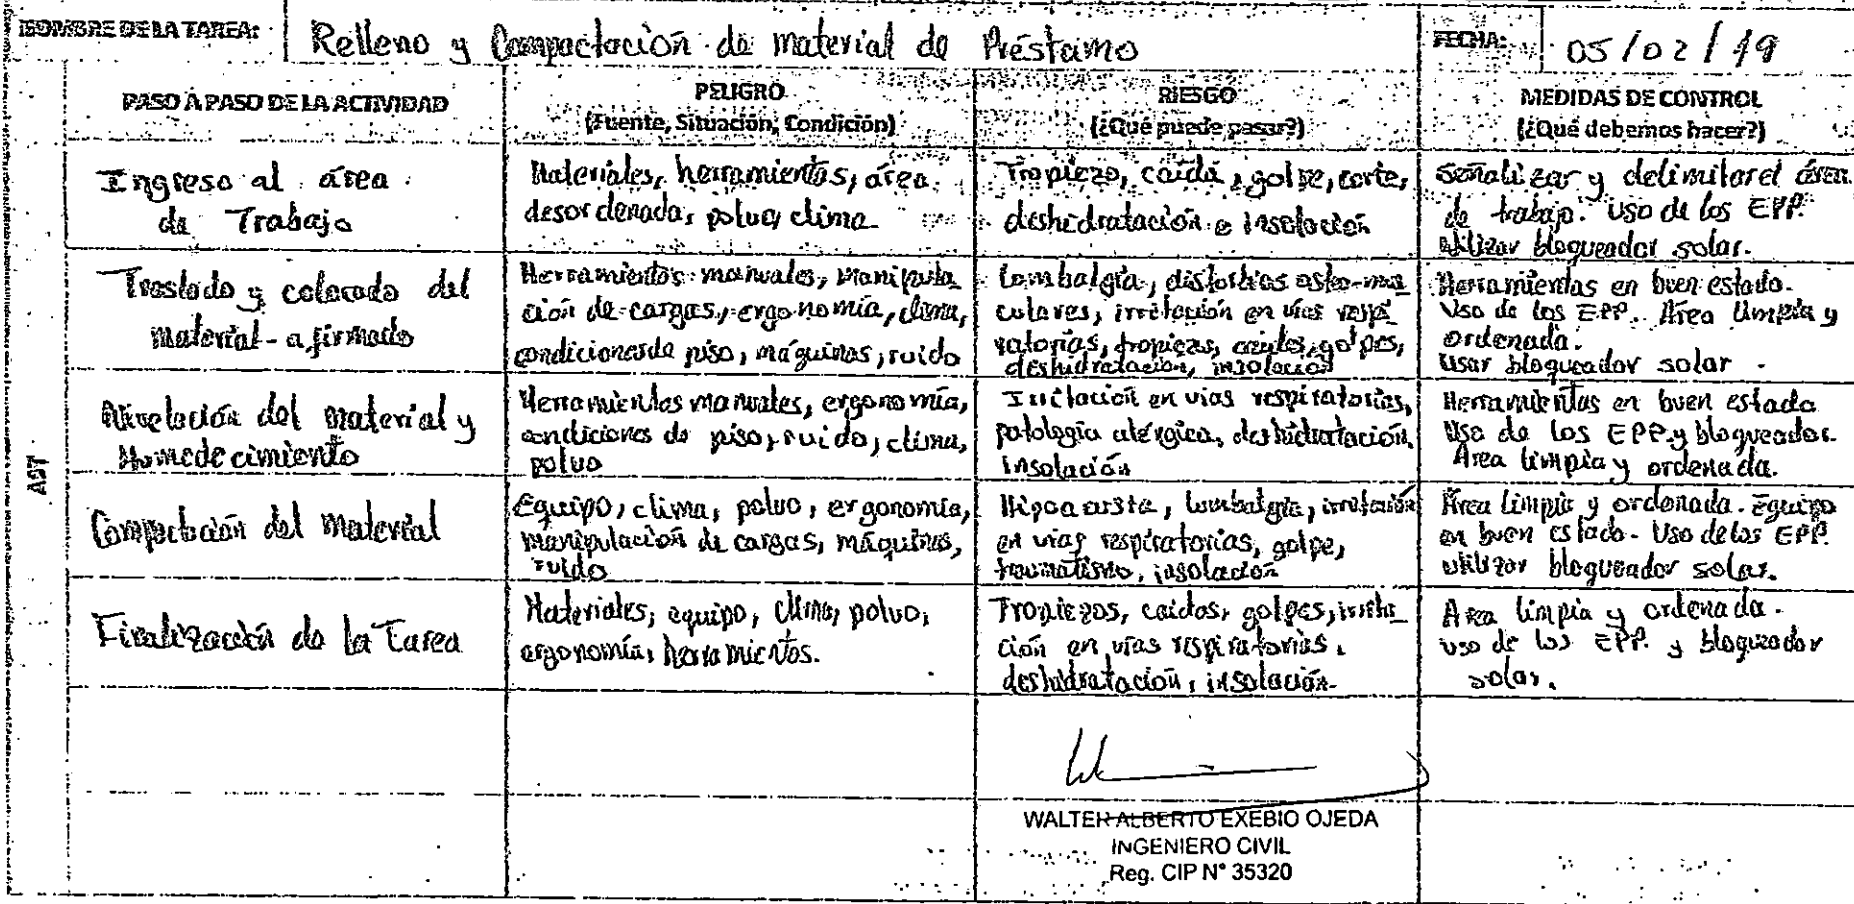 NOMBRE DE LA TAREA: Relleno y Compactación de material de Préstamo FECHA: 05/02/19
AST
PASO A PASO DE LA ACTIVIDAD
PELIGRO
(Fuente, Situación, Condición)
RIESGO
(¿Qué puede pasar?)
MEDIDAS DE CONTROL
(¿Qué debemos hacer?)
Ingreso al área
de Trabajo
Materiales, herramientas, área
desordenada, polvo, clima
Tropiezo, caída, golpe, corte,
deshidratación e insolación
Señalizar y delimitar el área
de trabajo. Uso de los EPP.
utilizar bloqueador solar.
Traslado y colocado del
material - afirmado
Herramientas manuales, manipula
ción de cargas, ergonomía, clima,
condiciones de piso, máquinas, ruido
Lombalgia, distorbios osteo-mus
culares, irritación en vías respi
ratorias, tropiezos, caídas, golpes,
deshidratación, insolación
Herramientas en buen estado.
Uso de los EPP. Área limpia y
ordenada.
Usar bloqueador solar.
Nivelación del material y
Humedecimiento
Herramientas manuales, ergonomía,
condiciones de piso, ruido, clima,
polvo
Irritación en vias respiratorias,
patología alérgica, deshidratación,
insolación
Herramientas en buen estado
Uso de los EPP y bloqueador.
Área limpia y ordenada.
Compactación del material
Equipo, clima, polvo, ergonomía,
manipulación de cargas, máquinas,
ruido
Hipoacusia, lumbalgia, irritación
en vias respiratorias, golpe,
traumatismo, insolación
Área limpia y ordenada. Equipo
en buen estado. Uso de los EPP.
utilizar bloqueador solar.
Finalización de la Tarea
Materiales, equipo, clima, polvo,
ergonomía, herramientas.
Tropiezos, caidas, golpes, irrita
ción en vías respiratorias,
deshidratación, insolación.
Area limpia y ordenada.
uso de los EPP. y bloqueador
solar.
WALTER ALBERTO EXEBIO OJEDA
INGENIERO CIVIL
Reg. CIP N° 35320